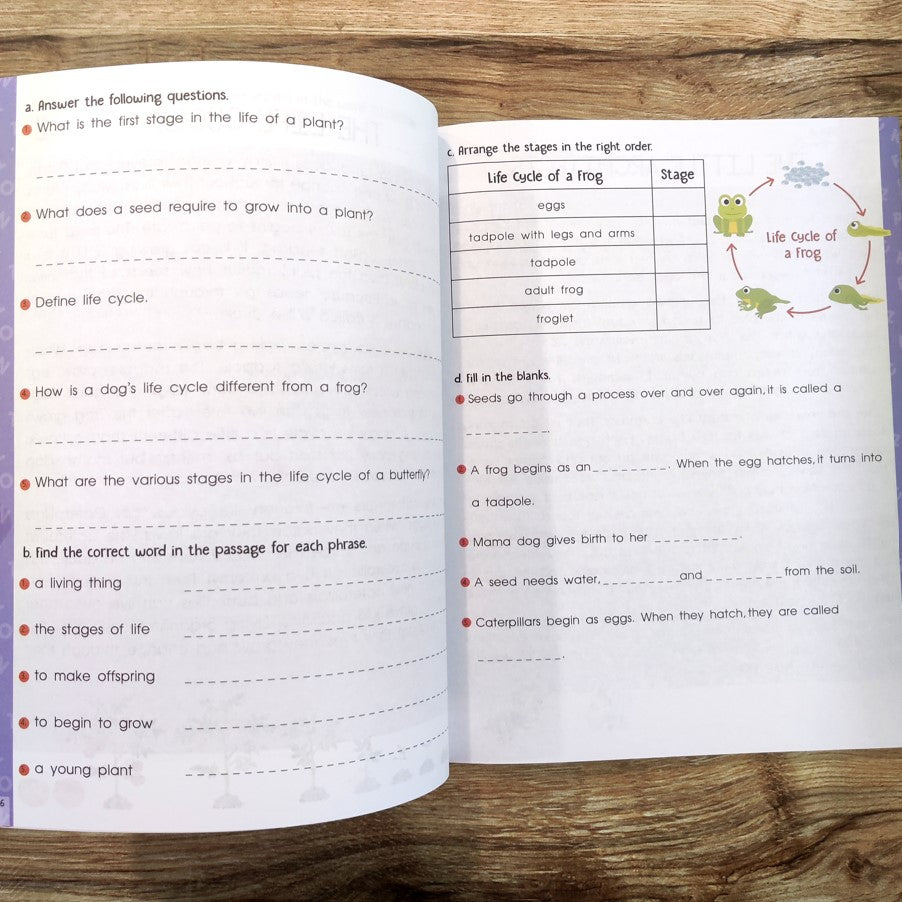 a. Answer the following questions.
1. What is the first stage in the life of a plant?
2. What does a seed require to grow into a plant?
3. Define life cycle.
4. How is a dog's life cycle different from a frog?
5. What are the various stages in the life cycle of a butterfly?
b. Find the correct word in the passage for each phrase.
1. a living thing
2. the stages of life
3. to make offspring
4. to begin to grow
5. a young plant
6
c. Arrange the stages in the right order.
Life Cycle of a Frog Stage
eggs
tadpole with legs and arms
tadpole
adult frog
froglet
Life Cycle of
a Frog
d. Fill in the blanks.
1. Seeds go through a process over and over again, it is called a
_ _ _ _ _ _ _ _.
2. A frog begins as an_ _ _ _ _ _ _ _. When the egg hatches, it turns into
a tadpole.
3. Mama dog gives birth to her _ _ _ _ _ _ _ _.
4. A seed needs water,_ _ _ _ _ _ _ _and _ _ _ _ _ _ _ _from the soil.
5. Caterpillars begin as eggs. When they hatch, they are called
_ _ _ _ _ _ _ _.